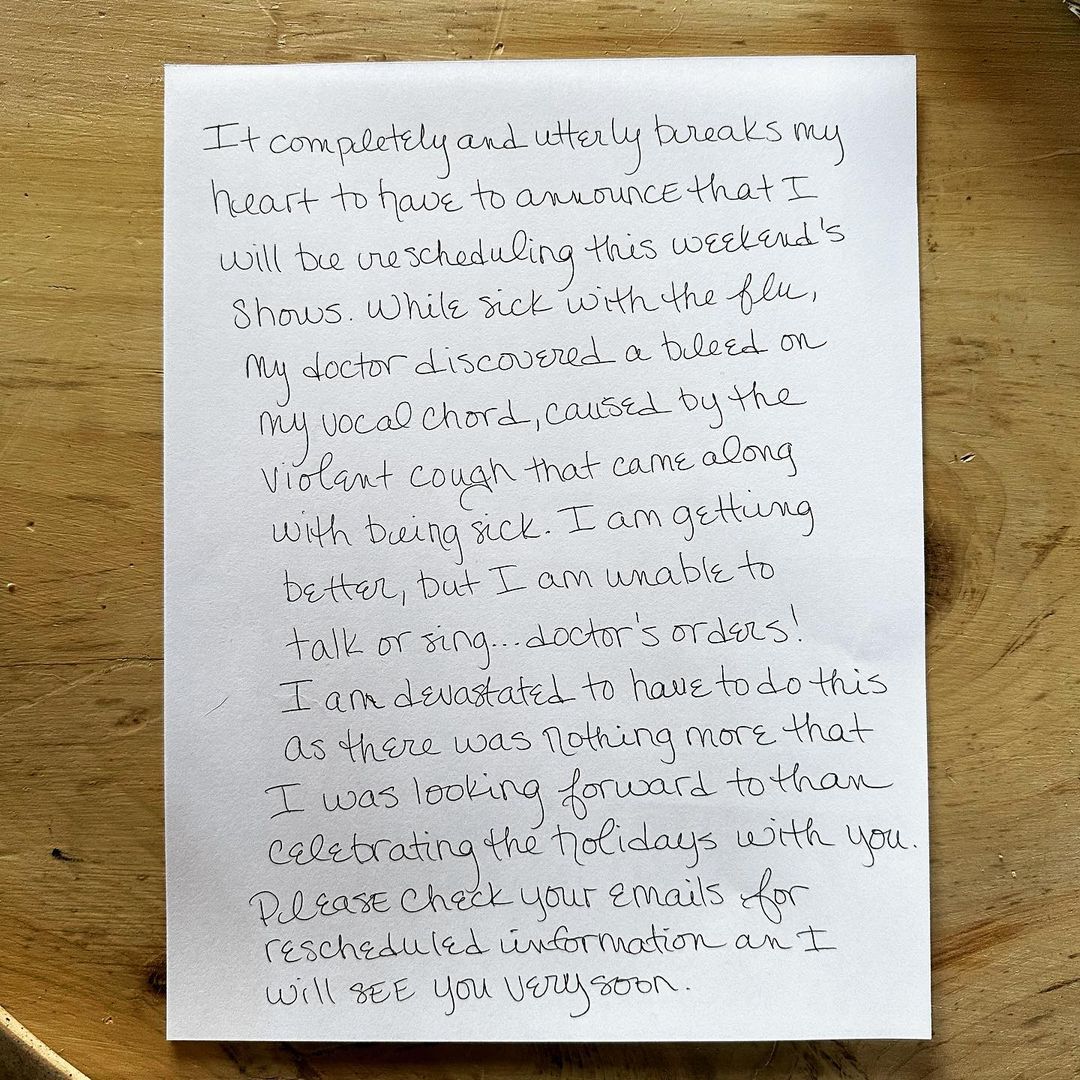 It completely and utterly breaks my
heart to have to announce that I
will be rescheduling this weekend's
shows. While sick with the flu,
my doctor discovered a bleed on
my vocal chord, caused by the
violent cough that came along
with being sick. I am getting
better, but I am unable to
talk or sing...doctor's orders!
I am devastated to have to do this
as there was nothing more that
I was looking forward to than
celebrating the holidays with you.
Please check your emails for
rescheduled information an I
will see you very soon.